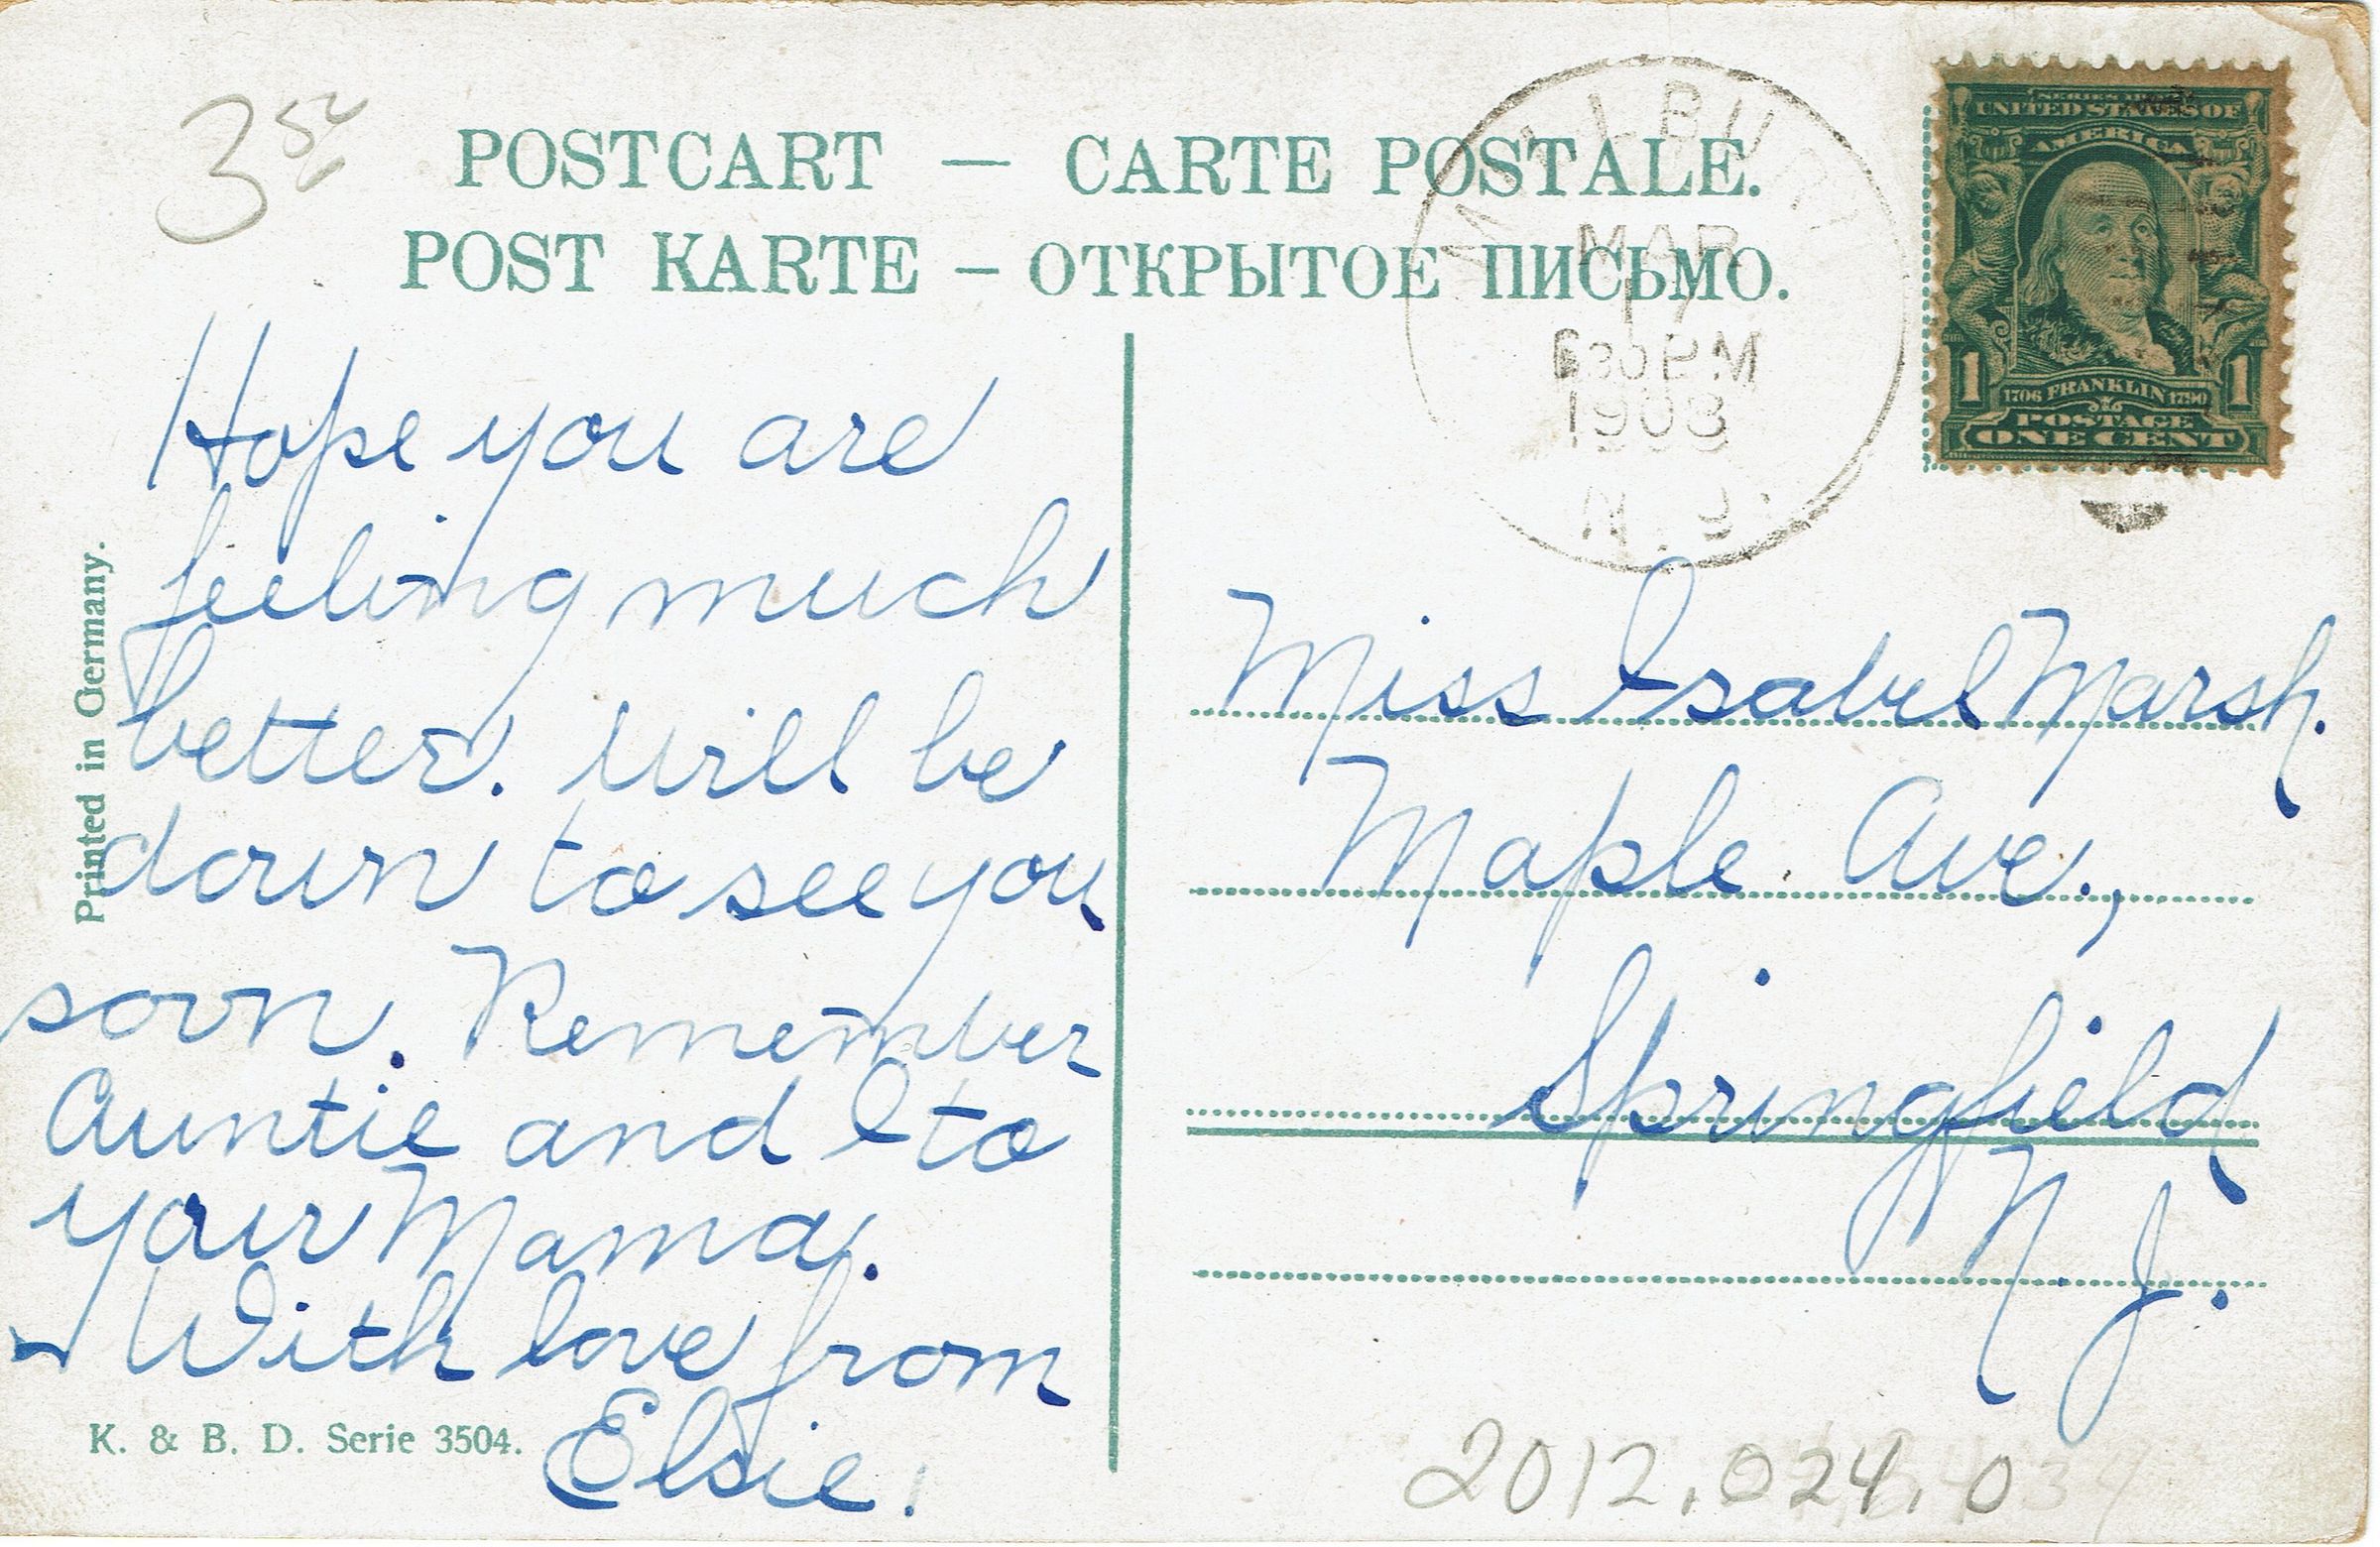 3 50
POSTCART — CARTE POSTALE.
POST KARTE – ОТКРЫТОЕ ПИСЬМО.
MILLBURN
MAR
17
630 PM
1908
N. J.
SERIES 1902
UNITED STATES OF
AMERICA
1 1
1706 FRANKLIN 1790
POSTAGE
ONE CENT
Printed in Germany.
Hope you are
feeling much
better. Will be
down to see you
soon. Remember
Auntie and I to
your Mama.
With love from
Elsie.
K. & B. D. Serie 3504.
Miss Isabel Marsh.
Maple Ave.,
Springfield
N. J.
2012.024.034